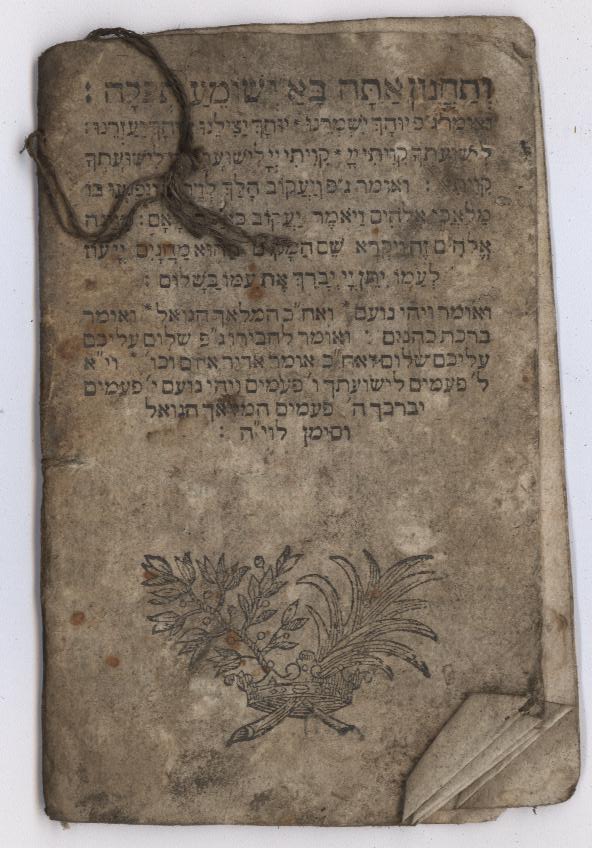 וְחַנּוּן אַתָּה בָּא וְשׁוֹמֵעַ תְּפִלָּה :
ואומר ג״פ יוהך ישמרנו * יוהך יצילנו יוהך יעזרנו :
לישועתך קויתי יי * קויתי יי לישועתך לישועתך
קויתי : ואומר ג״פ ויעקוב הלך לדרכו ויפגעו בו
מלאכי אלהים ויאמר יעקוב כאשר ראם : מחנה
אלהים זה ויקרא שם המקום ההוא מחנים יי עוז
לעמו יתן יי יברך את עמו בשלום :
ואומר ויהי נועם * ואח״כ המלאך הגואל * ואומר
ברכת כהנים * ואומר לחבירו ג״פ שלום עליכם
עליכם שלום * ואח״כ אומר אדיר איום וכו׳ * וי״א
ל׳ פעמים לישועתך ו׳ פעמים ויהי נועם י׳ פעמים
יברכך ה׳ פעמים המלאך הגואל
וסימן לוי״ה :